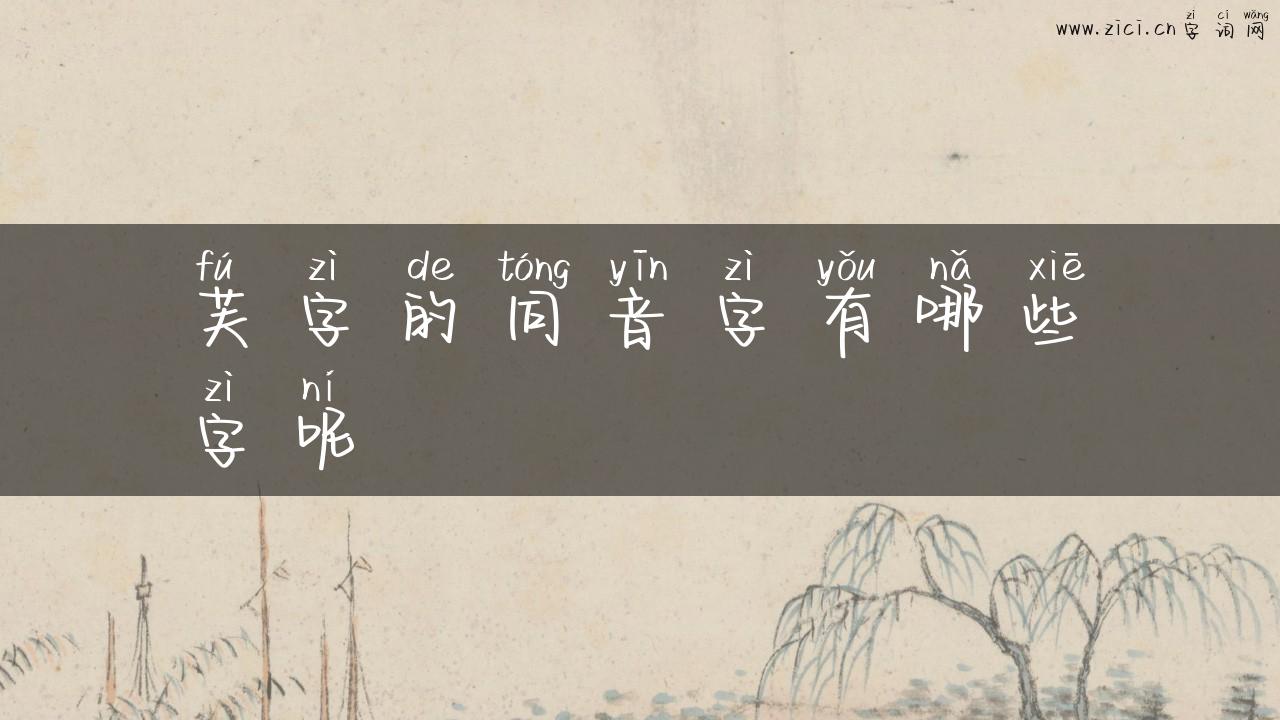 zì cí wǎng
www.zici.cn 字词网
fú zì de tóng yīn zì yǒu nǎ xiē
芙字的同音字有哪些
zì ní
字呢